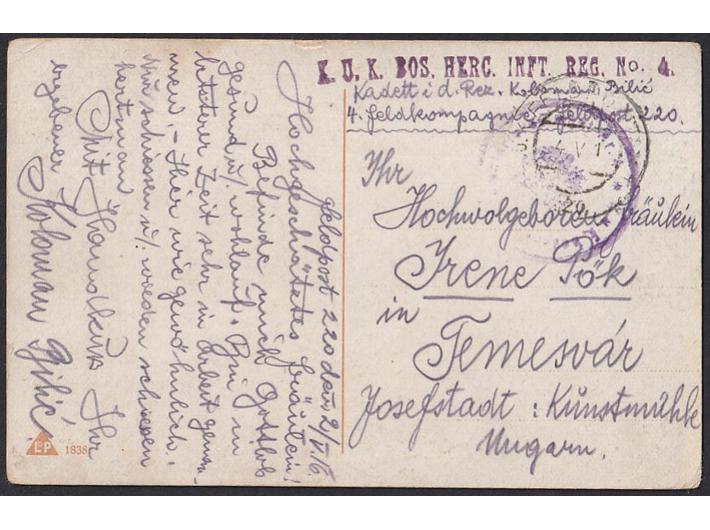 K. U. K. BOS. HERC. INFT. REG. No. 4.
Kadett i. d. Rez. Koloman Bilić
4. Feldkompagnie Feldpost 220.
Ihr
Hochwolgeboren Fräulein
Irene Pök
in
Temesvár
Josefstadt : Kunstmühle
Ungarn.
Feldpost 220 dat. 2/V. 16.
Hochgeschätztes Fräulein!
Befinde mich Gottlob
gesund u. wohlauf. Bin in
letzterer Zeit sehr in Arbeit genom-
men. - Hier wie gewöhnlich.
Nur schiessen u. wieder schiessen
hört man
Mit Handkuss Ihr
ergebener
Koloman Bilić
L&P
1838